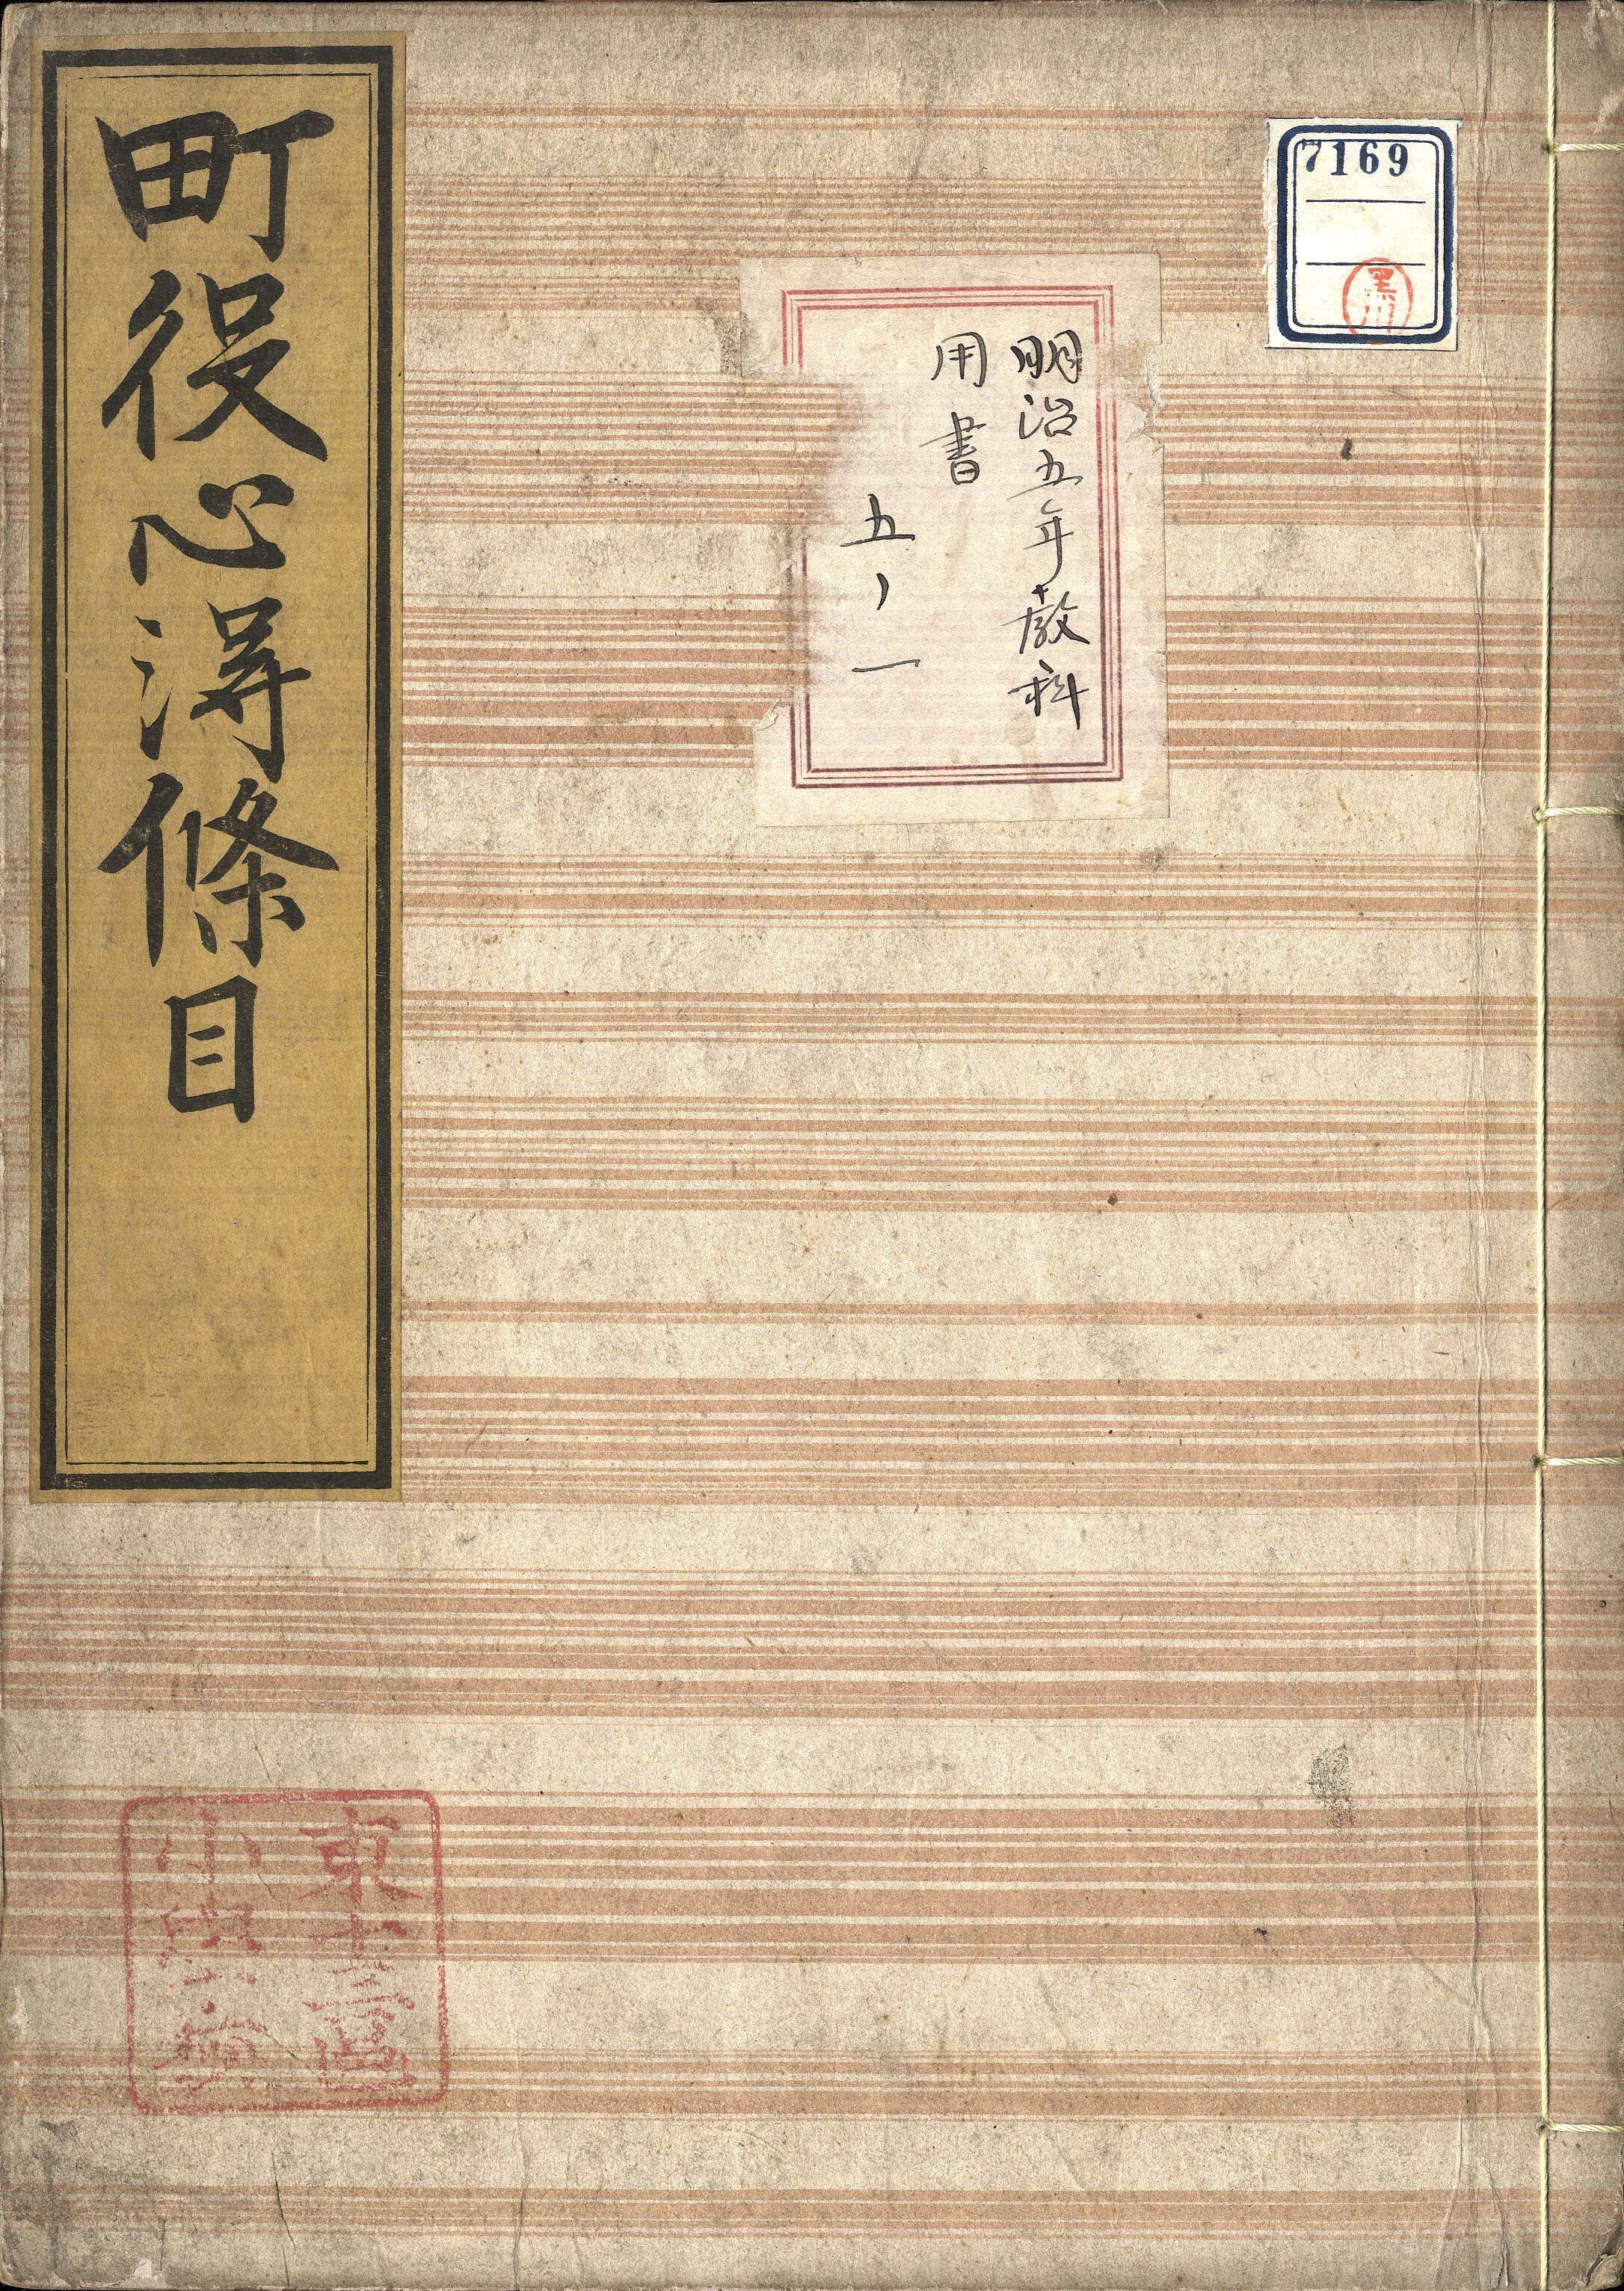 7169
黒川
明治五年教科
用書
五ノ一
町役心得條目
東十三區
小學校